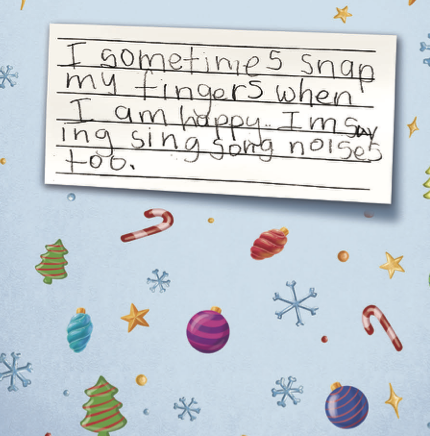 I sometimes snap
my fingers when
I am happy. I'm say
ing sing song noises
too.